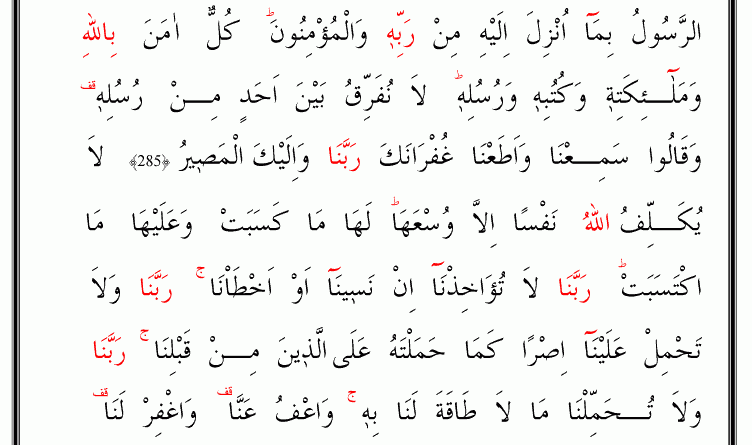 الرَّسُولُ بِمَٓا اُنْزِلَ اِلَيْهِ مِنْ رَبِّه۪ وَالْمُؤْمِنُونَۜ كُلٌّ اٰمَنَ بِاللّٰهِ
وَمَلٰٓئِكَتِه۪ وَكُتُبِه۪ وَرُسُلِه۪ۜ لَا نُفَرِّقُ بَيْنَ اَحَدٍ مِنْ رُسُلِه۪۠
وَقَالُوا سَمِعْنَا وَاَطَعْنَا غُفْرَانَكَ رَبَّنَا وَاِلَيْكَ الْمَص۪يرُ ﴿285﴾ لَا
يُكَلِّفُ اللّٰهُ نَفْسًا اِلَّا وُسْعَهَاۜ لَهَا مَا كَسَبَتْ وَعَلَيْهَا مَا
اكْتَسَبَتْۜ رَبَّنَا لَا تُؤَاخِذْنَٓا اِنْ نَس۪ينَٓا اَوْ اَخْطَاْنَاۚ رَبَّنَا وَلَا
تَحْمِلْ عَلَيْنَٓا اِصْرًا كَمَا حَمَلْتَهُ عَلَى الَّذ۪ينَ مِنْ قَبْلِنَاۚ رَبَّنَا
وَلَا تُحَمِّلْنَا مَا لَا طَاقَةَ لَنَا بِه۪ۚ وَاعْفُ عَنَّا۠ وَاغْفِرْ لَنَا۠